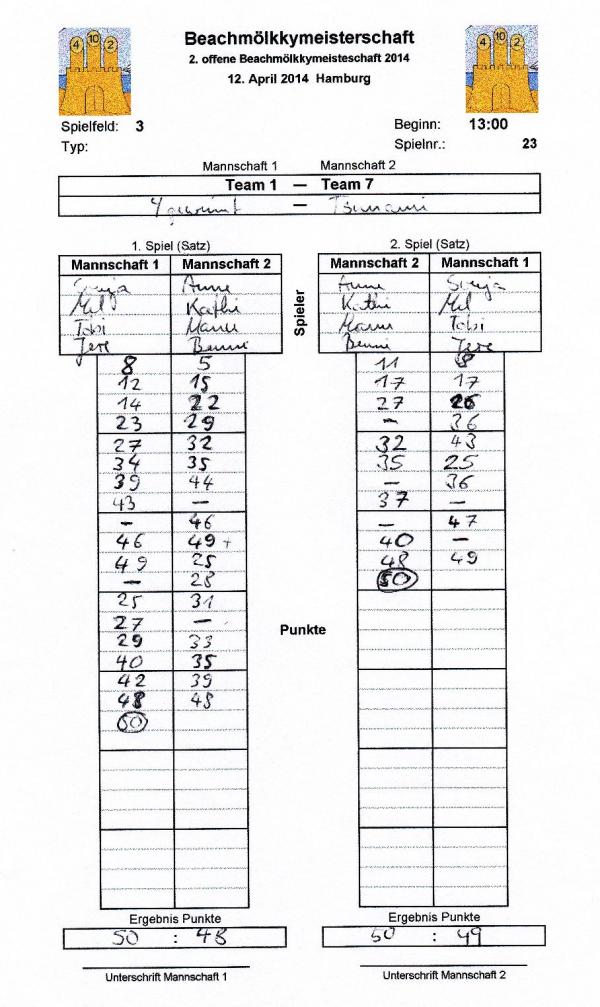 4 10 2
Beachmölkkymeisterschaft
4 10 2
2. offene Beachmölkkymeisteschaft 2014
12. April 2014 Hamburg
Spielfeld: 3 Beginn: 13:00
Typ: Spielnr.: 23
Mannschaft 1 Mannschaft 2
Team 1 — Team 7
— Tsunami
1. Spiel (Satz) 2. Spiel (Satz)
Mannschaft 1 Mannschaft 2 Spieler Mannschaft 2 Mannschaft 1
Sonja Anne Anne Sonja
Mel Kathi Kathi Mel
Tobi Manu Manu Tobi
Jere Benni Benni Jere
8 5 11 8
12 15 17 17
14 22 27 26
23 29 – 36
27 32 32 43
34 35 35 25
39 44 – 36
43 – 37 –
– 46 – 47
46 49 + 40 –
49 25 48 49
– 28 50
25 31
27 – Punkte
29 33
40 35
42 39
48 48
50
Ergebnis Punkte Ergebnis Punkte
50 : 48 50 : 49
Unterschrift Mannschaft 1 Unterschrift Mannschaft 2